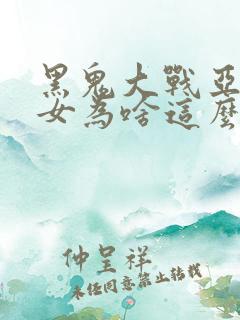 黑鬼大戰亞
女為啥這麼
仲呈祥
未经同意禁止转载